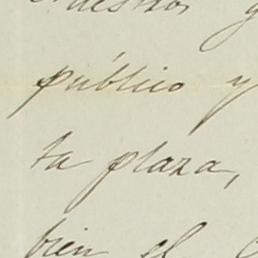 público y
ta plaza,
bien el